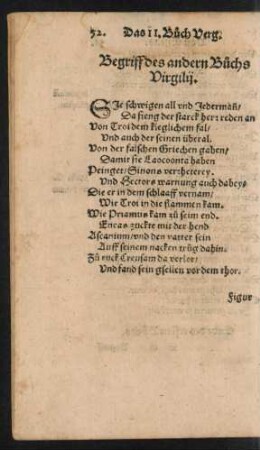 52. Das II. Bůch Verg.
Begriff des andern Bůchs
Virgilij.
SIe schwigen all vnd Jederman̄/
Da fieng der starck herr reden an
Von Troi dem kleglichem fal/
Vnd auch der seinen überal.
Von der falschen Griechen gaben/
Damit sie Laocoonta haben
Peinget/ Sinons verrheterey.
Vnd Hectors warnung auch dabey/
Die er in dem schlaaff vernam/
Wie Troi in die flammen kam.
Wie Priamus kam zů seim end.
Eneas zuckte mit der hend
Ascanium/ vnd den vatter sein
Auff seinem nacken trůg dahin.
Zů ruck Creusam da verlor/
Vnd fand sein gsellen vor dem thor.
Figur